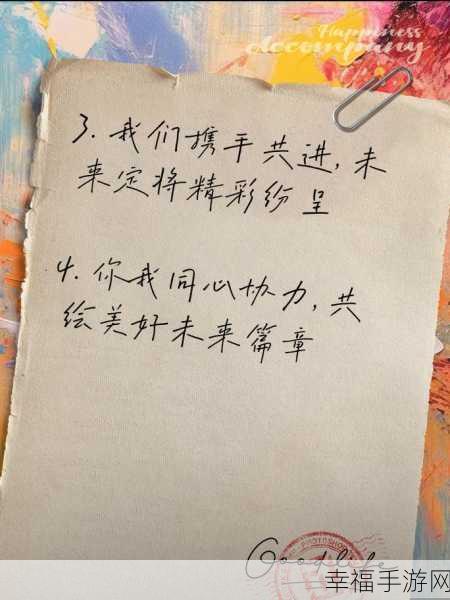 Happiness
accompany
3. 我们携手共进, 未
来定将精彩纷呈
4. 你我同心协力, 共
绘美好未来篇章
PHOTOSHOP
Good life
幸福手游网